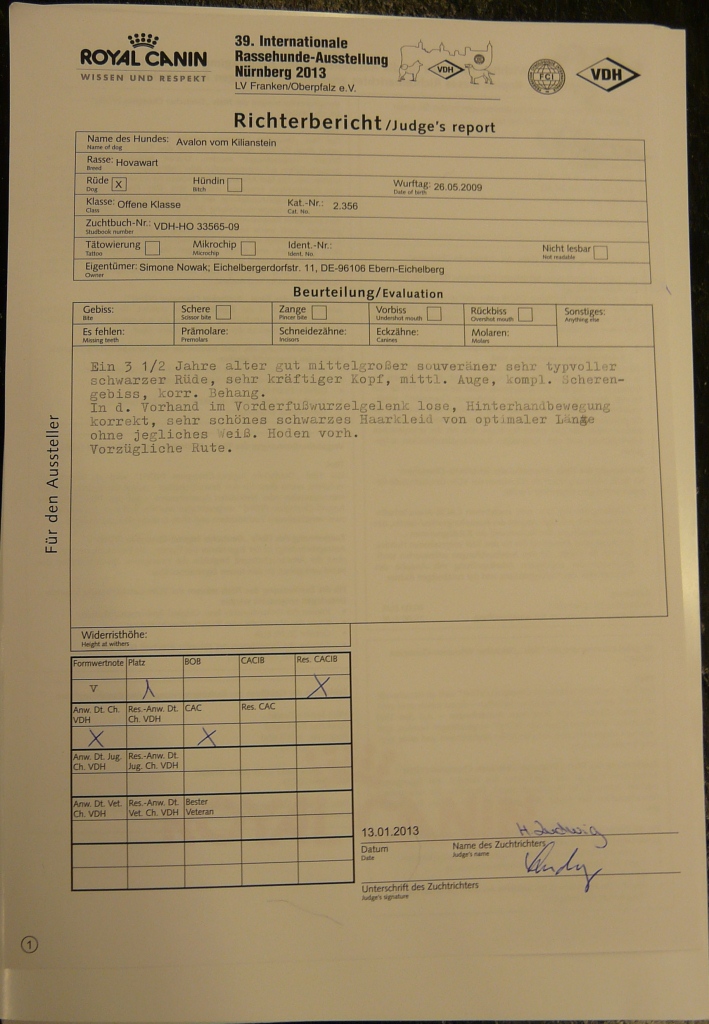 ROYAL CANIN
WISSEN UND RESPEKT
39. Internationale
Rassehunde-Ausstellung
Nürnberg 2013
LV Franken/Oberpfalz e.V.
VDH
FCI
VDH
Richterbericht /Judge's report
Name des Hundes: Avalon vom Kilianstein
Name of dog
Rasse: Hovawart
Breed
Rüde X Hündin Wurftag: 26.05.2009
Dog Bitch Date of birth
Klasse: Offene Klasse Kat.-Nr.: 2.356
Class Cat. No.
Zuchtbuch-Nr.: VDH-HO 33565-09
Studbook number
Tätowierung Mikrochip Ident.-Nr.: Nicht lesbar
Tattoo Microchip Ident. No Not readable
Eigentümer: Simone Nowak; Eichelbergerdorfstr. 11, DE-96106 Ebern-Eichelberg
Owner
Beurteilung/Evaluation
Gebiss: Schere Zange Vorbiss Rückbiss Sonstiges:
Bite Scissor bite Pincer bite Undershot mouth Overshot mouth Anything else
Es fehlen: Prämolare: Schneidezähne: Eckzähne: Molaren:
Missing teeth Premolars Incisors Canines Molars
Ein 3 1/2 Jahre alter gut mittelgroßer souveräner sehr typvoller
schwarzer Rüde, sehr kräftiger Kopf, mittl. Auge, kompl. Scheren-
gebiss, korr. Behang.
In d. Vorhand im Vorderfußwurzelgelenk lose, Hinterhandbewegung
korrekt, sehr schönes schwarzes Haarkleid von optimaler Länge
ohne jegliches Weiß. Hoden vorh.
Vorzügliche Rute.
Für den Aussteller
Widerristhöhe:
Height at withers
Formwertnote Platz BOB CACIB Res. CACIB
V 1 X
Anw. Dt. Ch. Res.-Anw. Dt. CAC Res. CAC
VDH Ch. VDH
X X
Anw. Dt. Jug. Res.-Anw. Dt.
Ch. VDH Jug. Ch. VDH
Anw. Dt. Vet. Res.-Anw. Dt. Bester
Ch. VDH Vet. Ch. VDH Veteran
13.01.2013 H Ludwig
Datum Name des Zuchtrichters
Date Judge's name
Unterschrift des Zuchtrichters
Judge's signature
1